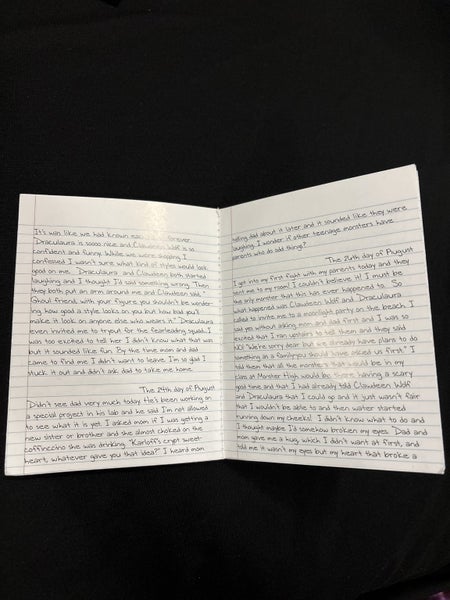 It's was like we had known forever.
Draculaura is soooo nice and Clawdeen Wolf is so
confident and funny. While we were shopping I
confessed I wasn't sure what kind of styles would look
good on me. Draculaura and Clawdeen both started
laughing and I thought I'd said something wrong. Then
they both put an arm around me and Clawdeen said "
Ghoul friend, with your figure you shouldn't be wonder-
ing how good a style looks on you but how bad you'll
make it look on anyone else who wears it." Draculaura
even invited me to tryout for the fearleading squad. I
was too excited to tell her I didn't know what that was
but it sounded like fun. By the time mom and dad
came to find me I didn't want to leave. I'm so glad I
stuck it out and didn't ask dad to take me home.
The 24th day of August
Didn't see dad very much today. He's been working on
a special project in his lab and he said I'm not allowed
to see what it is yet. I asked mom if I was getting a
new sister or brother and she almost choked on the
coffinccino she was drinking. "Karloff's crypt sweet-
heart, whatever gave you that idea?" I heard mom
telling dad about it later and it sounded like they were
laughing. I wonder if other teenage monsters have
parents who do odd things?
The 26th day of August
I got into my first fight with my parents today and they
sent me to my room! I couldn't believe it! I must be
the only monster that this has ever happened to. So
what happened was Clawdeen Wolf and Draculaura
called to invite me to a moonlight party on the beach. I
said yes without asking mom and dad first and I was so
excited that I ran upstairs to tell them and they said
NO! "We're sorry dear but we already have plans to do
something as a family; you should have asked us first." I
told them that all the monsters that would be in my
class at Monster High would be there having a scary
good time and that I had already told Clawdeen Wolf
and Draculaura that I could go and it just wasn't fair
that I wouldn't be able to and then water started
running down my cheeks! I didn't know what to do and
I thought maybe I'd somehow broken my eyes. Dad and
mom gave me a hug, which I didn't want at first, and
told me it wasn't my eyes but my heart that broke a